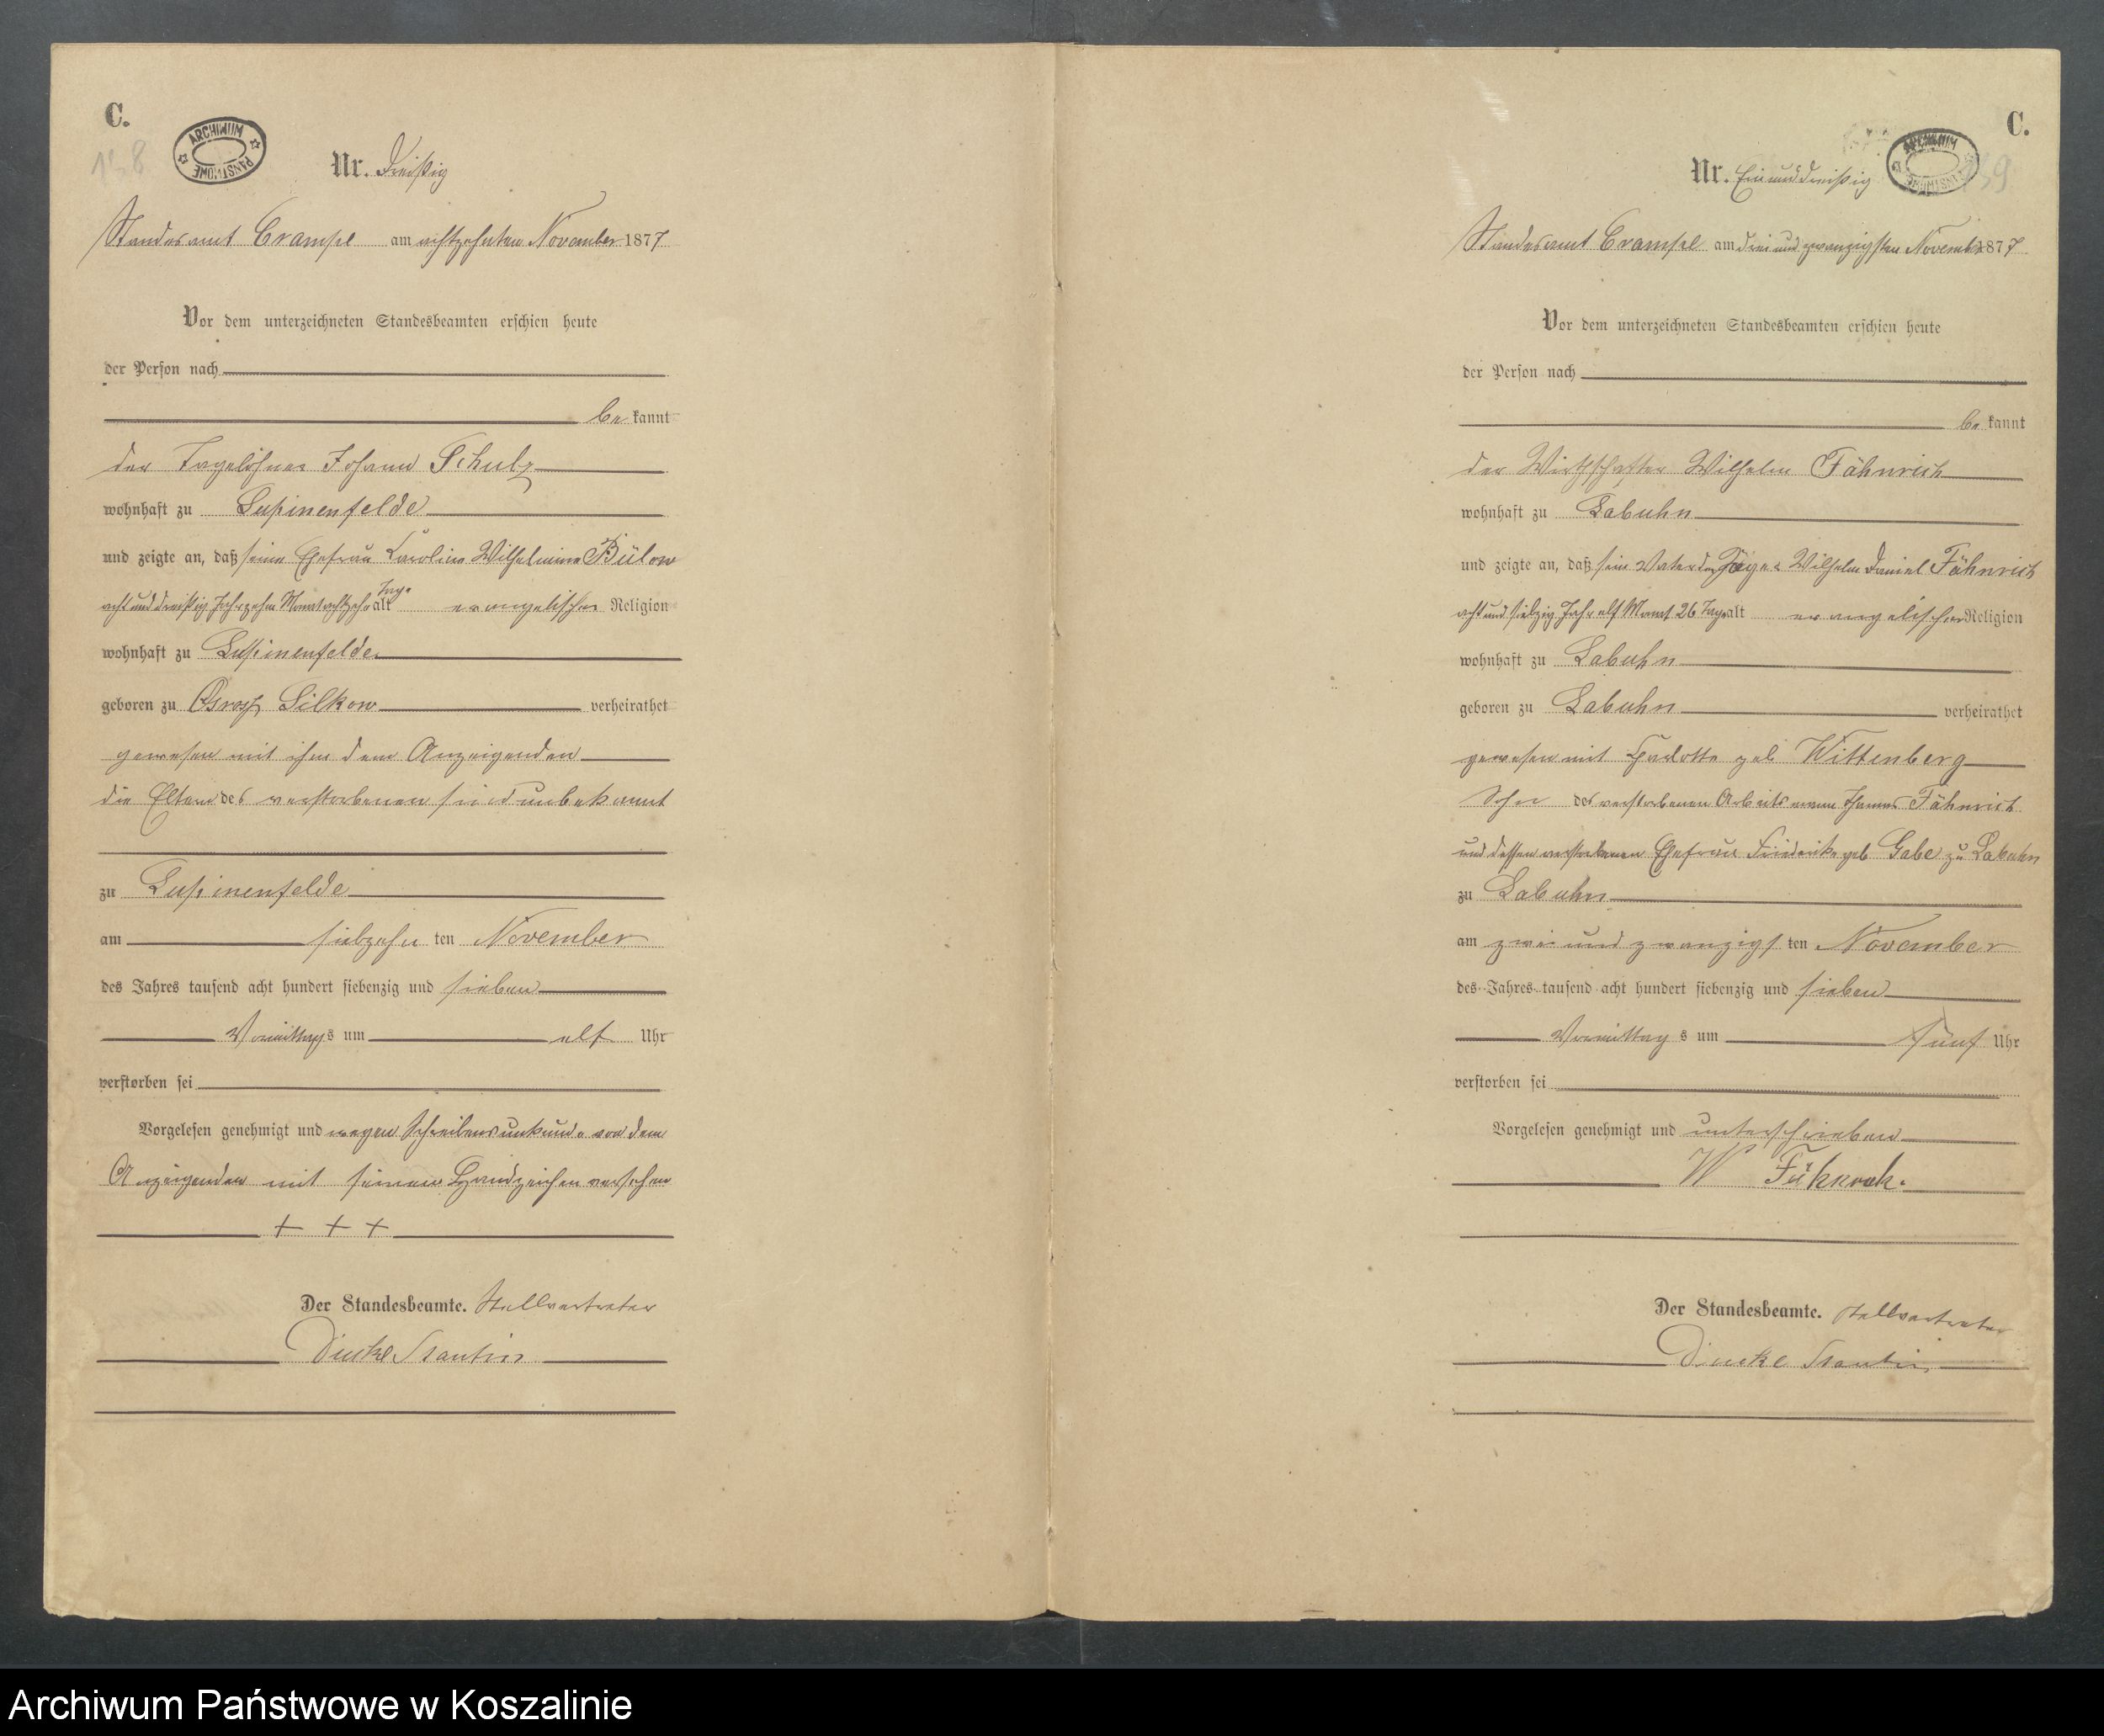 C.
138
ARCHIWUM PAŃSTWOWE
Nr. Dreißig
Standesamt Crampe am achtzehnten November 1877
Vor dem unterzeichneten Standesbeamten erschien heute
der Person nach
be kannt
der Tagelöhner Johann Schulz
wohnhaft zu Lupinenfelde
und zeigte an, daß seine Ehefrau Karoline Wilhelmine Bülow
acht und dreißig Jahr zehn Monat achtzehn Tage alt evangelischer Religion
wohnhaft zu Lupinenfelde
geboren zu Silkow verheirathet
gewesen mit ihm dem Anzeigenden
die Eltern des verstorbenen sind unbekannt
zu Lupinenfelde
am siebzehn ten November
des Jahres tausend acht hundert siebenzig und sieben
Vormittags um elf Uhr
verstorben sei
Vorgelesen genehmigt und wegen Schreibensunkunde von dem
Anzeigenden mit seinem Handzeichen versehen
+ + +
Der Standesbeamte. Stellvertreter
C.
139
ARCHIWUM PAŃSTWOWE
Nr. Ein und dreißig
Standesamt Crampe am drei und zwanzigsten November 1877
Vor dem unterzeichneten Standesbeamten erschien heute
der Person nach
be kannt
der Wirthschafter Wilhelm Fähnrich
wohnhaft zu Labuhn
und zeigte an, daß sein Vater der Jäger Wilhelm Daniel Fähnrich
acht und siebzig Jahr elf Monat 26 Tage alt evangelischer Religion
wohnhaft zu Labuhn
geboren zu Labuhn verheirathet
gewesen mit Charlotte geb Wittenberg
Sohn des verstorbenen Arbeitsmann Fähnrich
und dessen verstorbenen Ehefrau Friederike geb Gabe zu Labuhn
zu Labuhn
am zwei und zwanzigs ten November
des Jahres tausend acht hundert siebenzig und sieben
Vormittag s um fünf Uhr
verstorben sei
Vorgelesen genehmigt und unterschrieben
W
Der Standesbeamte. Stellvertreter
Archiwum Państwowe w Koszalinie